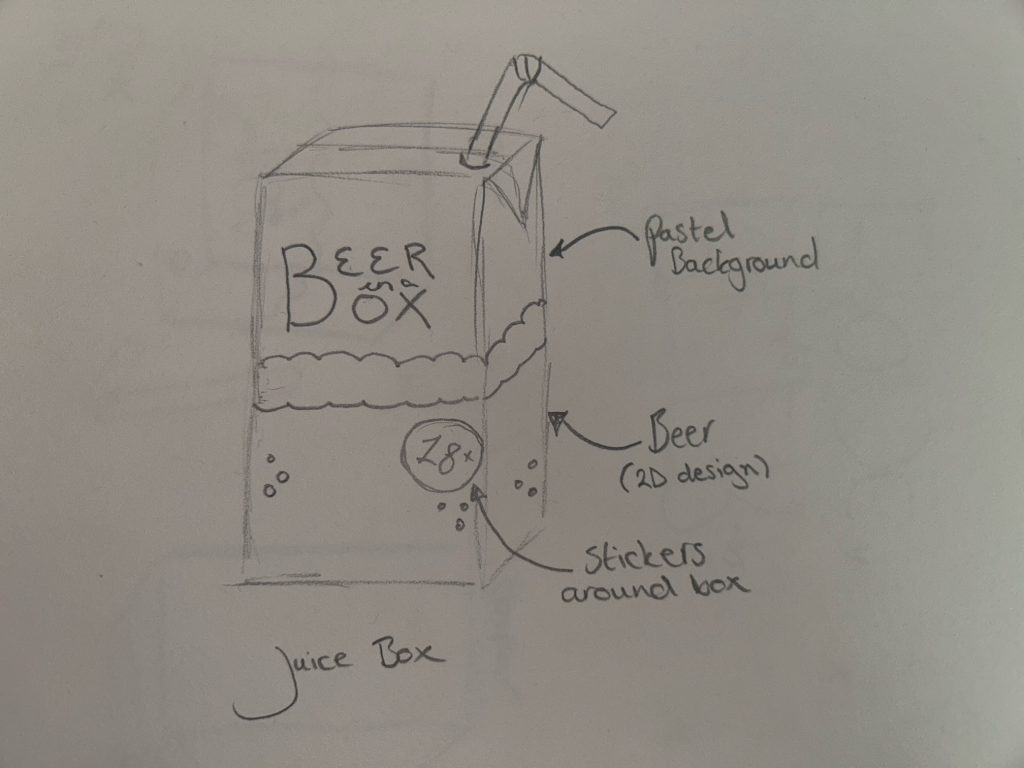 BEER
in a
BOX
Pastel
Background
Beer
(2D design)
18+
Stickers
around box
Juice Box